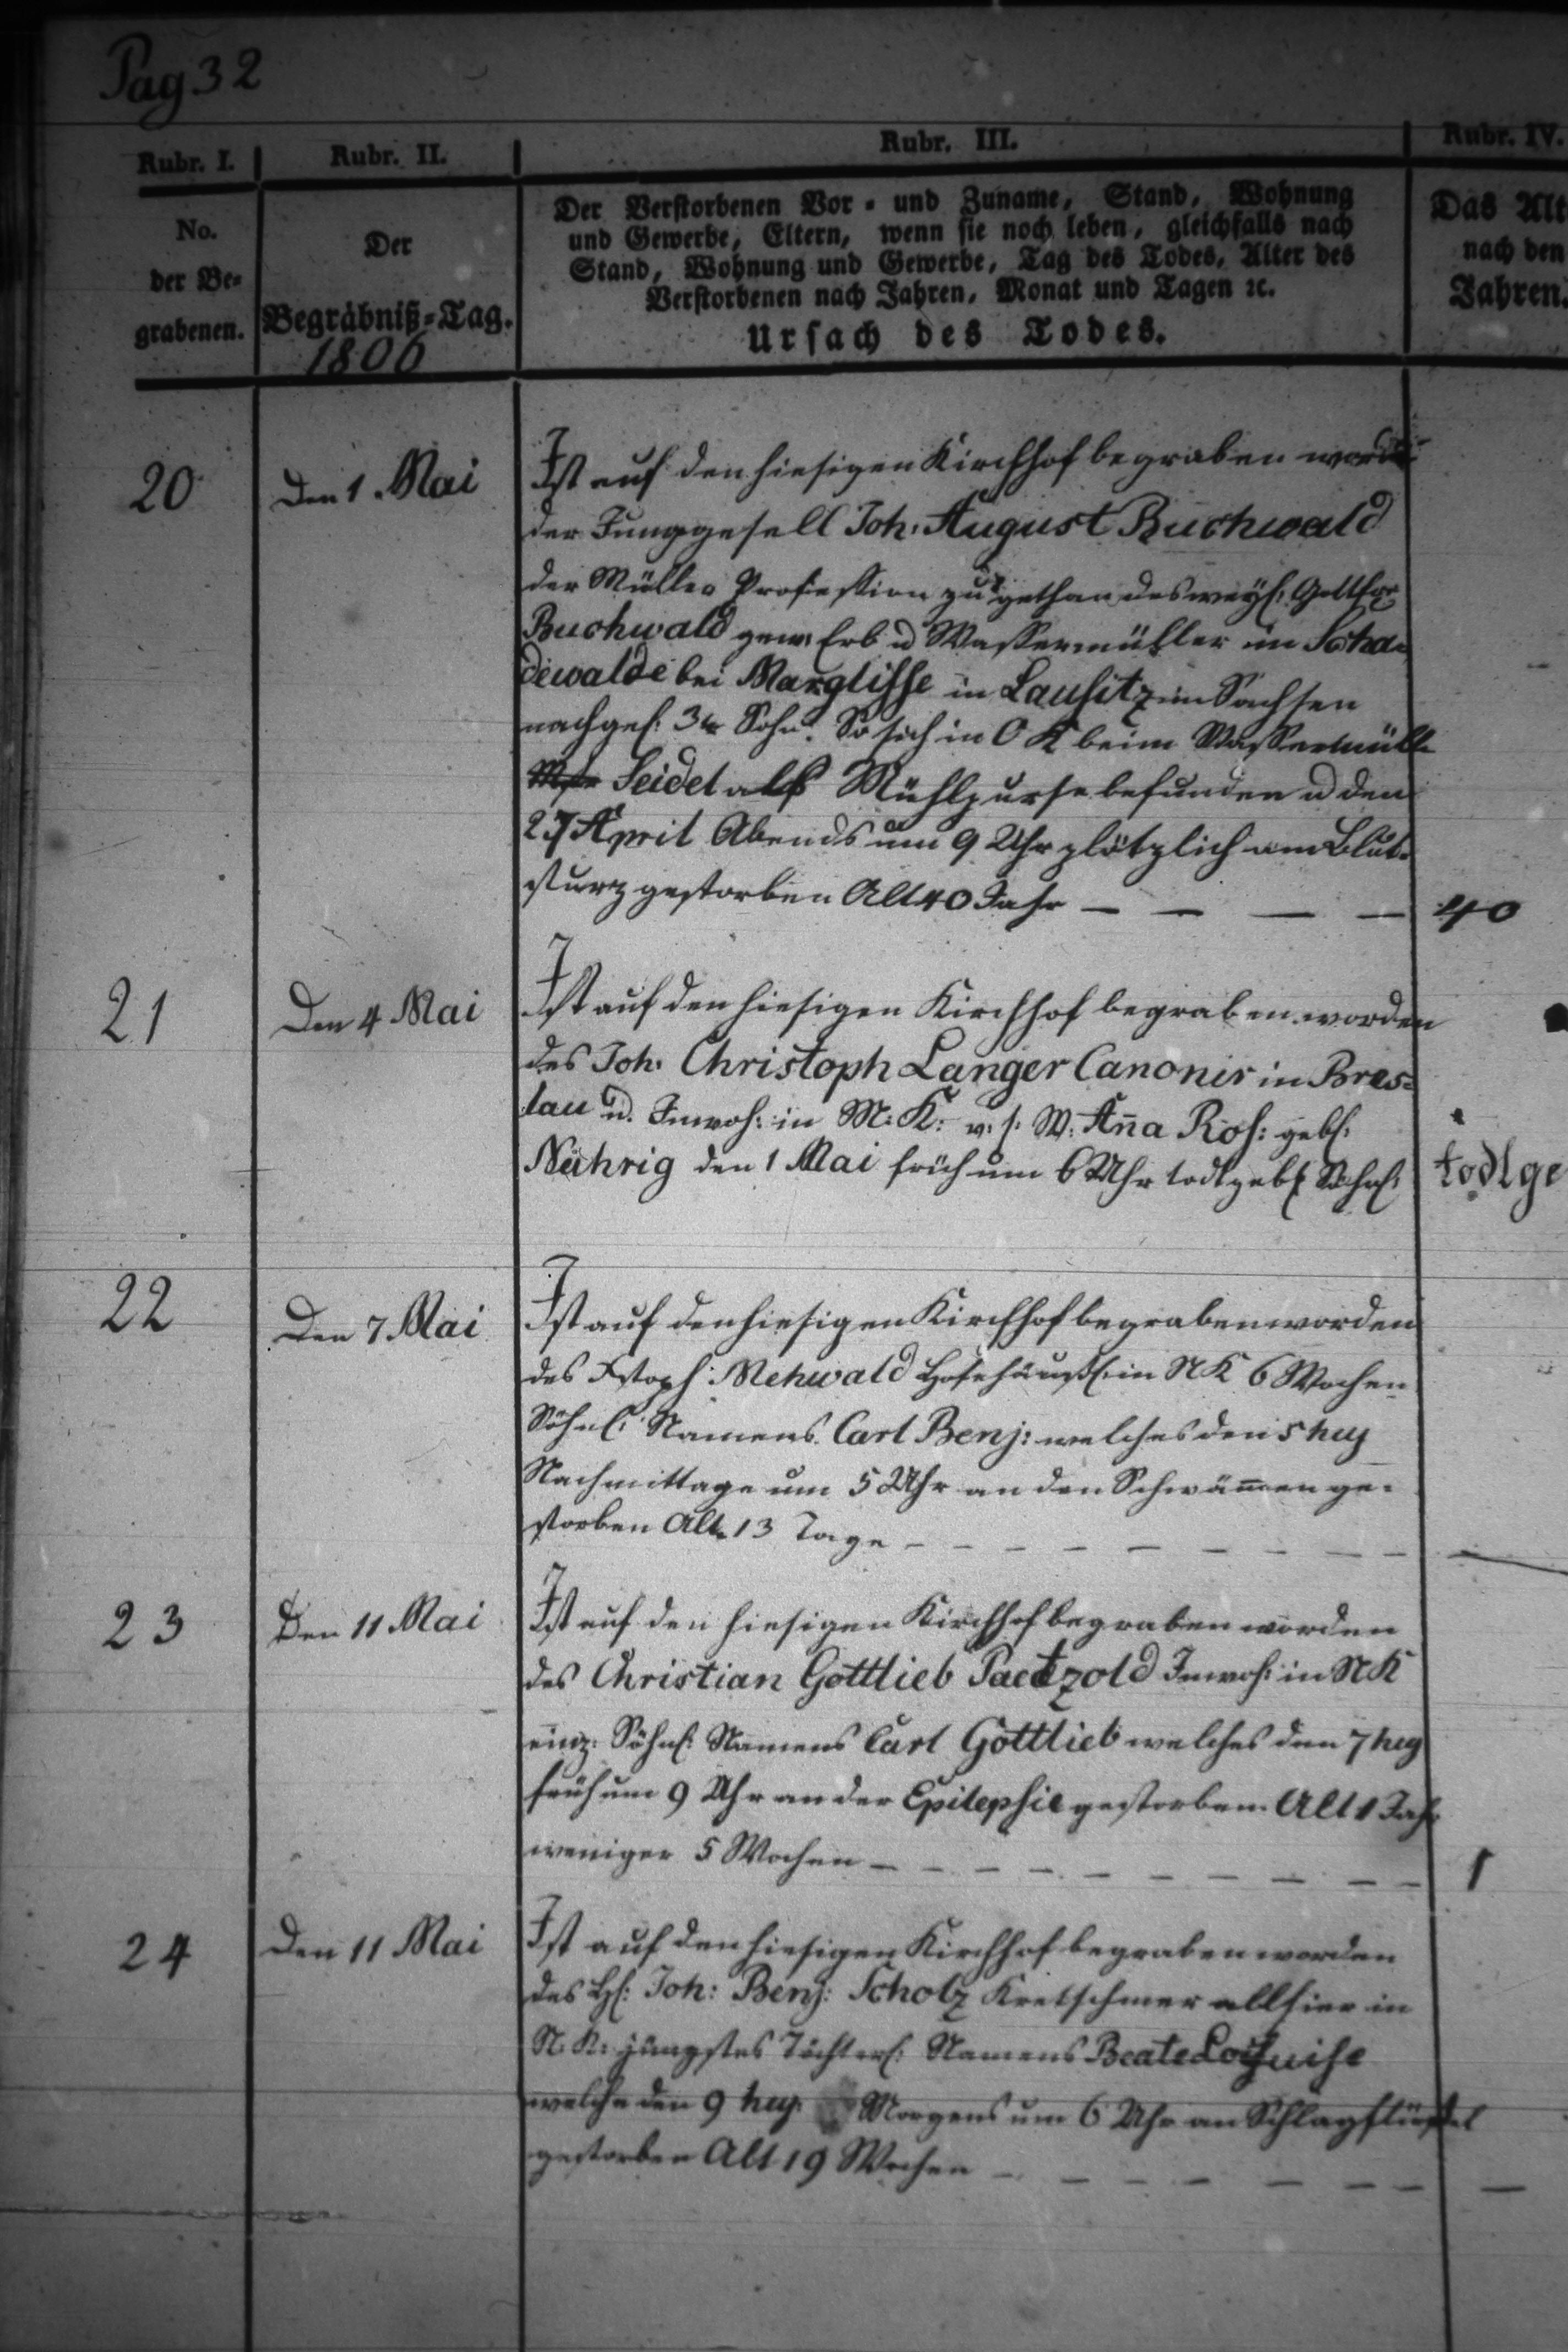 Pag 32
Rubr. I.
Rubr. II.
Rubr. III.
Rubr. IV.
No.
der Be-
grabenen.
Der
Begräbniß-Tag.
1806
Der Verstorbenen Vor- und Zuname, Stand, Wohnung
und Gewerbe, Eltern, wenn sie noch leben, gleichfalls nach
Stand, Wohnung und Gewerbe, Tag des Todes, Alter des
Verstorbenen nach Jahren, Monat und Tagen ꝛc.
Ursach des Todes.
Das Alt
nach den
Jahren.
20
Den 1. Mai
Ist auf den hiesigen Kirchhof begraben worden
der Junggesell Joh: August Buchwald
der Müller Profession zugethan des weyl: Gottfr
Buchwald gew. Erb u Wassermüller in Scha-
dewalde bei Marglisse in Lausitz in Sachsen
nachgel: 3ter Sohn. So sich in O K beim Wassermüller
Seidel als Mühlpursche befunden u den
27 April Abends um 9 Uhr plötzlich am Blut-
sturz gestorben Alt 40 Jahr
40
21
Den 4 Mai
Ist auf den hiesigen Kirchhof begraben worden
des Joh: Christoph Langer Canonir in Bres-
lau u. Inwoh: in M: K: v. s. W: Aña Ros: geb:
Nährig den 1 Mai früh um 6 Uhr todtgeb: Söhnl:
todtge
22
Den 7 Mai
Ist auf den hiesigen Kirchhof begraben worden
des Xstoph: Mehwald Hofehäusl: in NK 6 Wochen
Söhnl: Namens Carl Benj: welches den 5 huj
Nachmittage um 5 Uhr an den Schwäm̄en ge-
storben Alt 13 Tage
23
Den 11 Mai
Ist auf den hiesigen Kirchhof begraben worden
des Christian Gottlieb Paetzold Inwoh: in NK
einz: Söhnl: Namens Carl Gottlieb welches den 7 huj
früh um 9 Uhr an der Epilepsie gestorben. Alt 1 Jahr
weniger 5 Wochen
1
24
Den 11 Mai
Ist auf den hiesigen Kirchhof begraben worden
des H: Joh: Benj: Scholz Kretschmer allhier in
N. K: jüngstes Töchterl: Namens Beate Louise
welche den 9 huj. Morgens um 6 Uhr an Schlagflüssel
gestorben Alt 19 Wochen